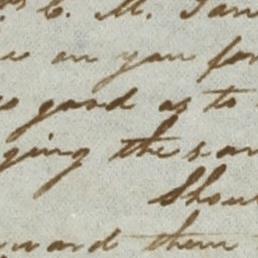 C. M. Tan
on you for
so good as to
ging the sam
Shou
ward them